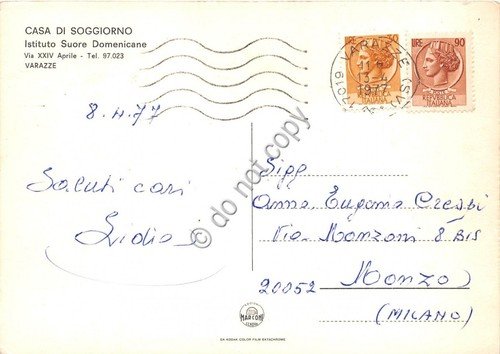 CASA DI SOGGIORNO
Istituto Suore Domenicane
Via XXIV Aprile - Tel. 97.023
VARAZZE
8.4.77
Saluti cari
Lidia
LIRE 90
POSTE
REPUBBLICA
ITALIANA
VARAZZE (SV)
13-4
1977
17019
do not copy
Sigg
Anna Eugenia Crespi
Via Manzoni 8 BIS
20052 Monza
(MILANO)
MARCONI
GENOVA
DA KODAK COLOR FILM EKTACHROME